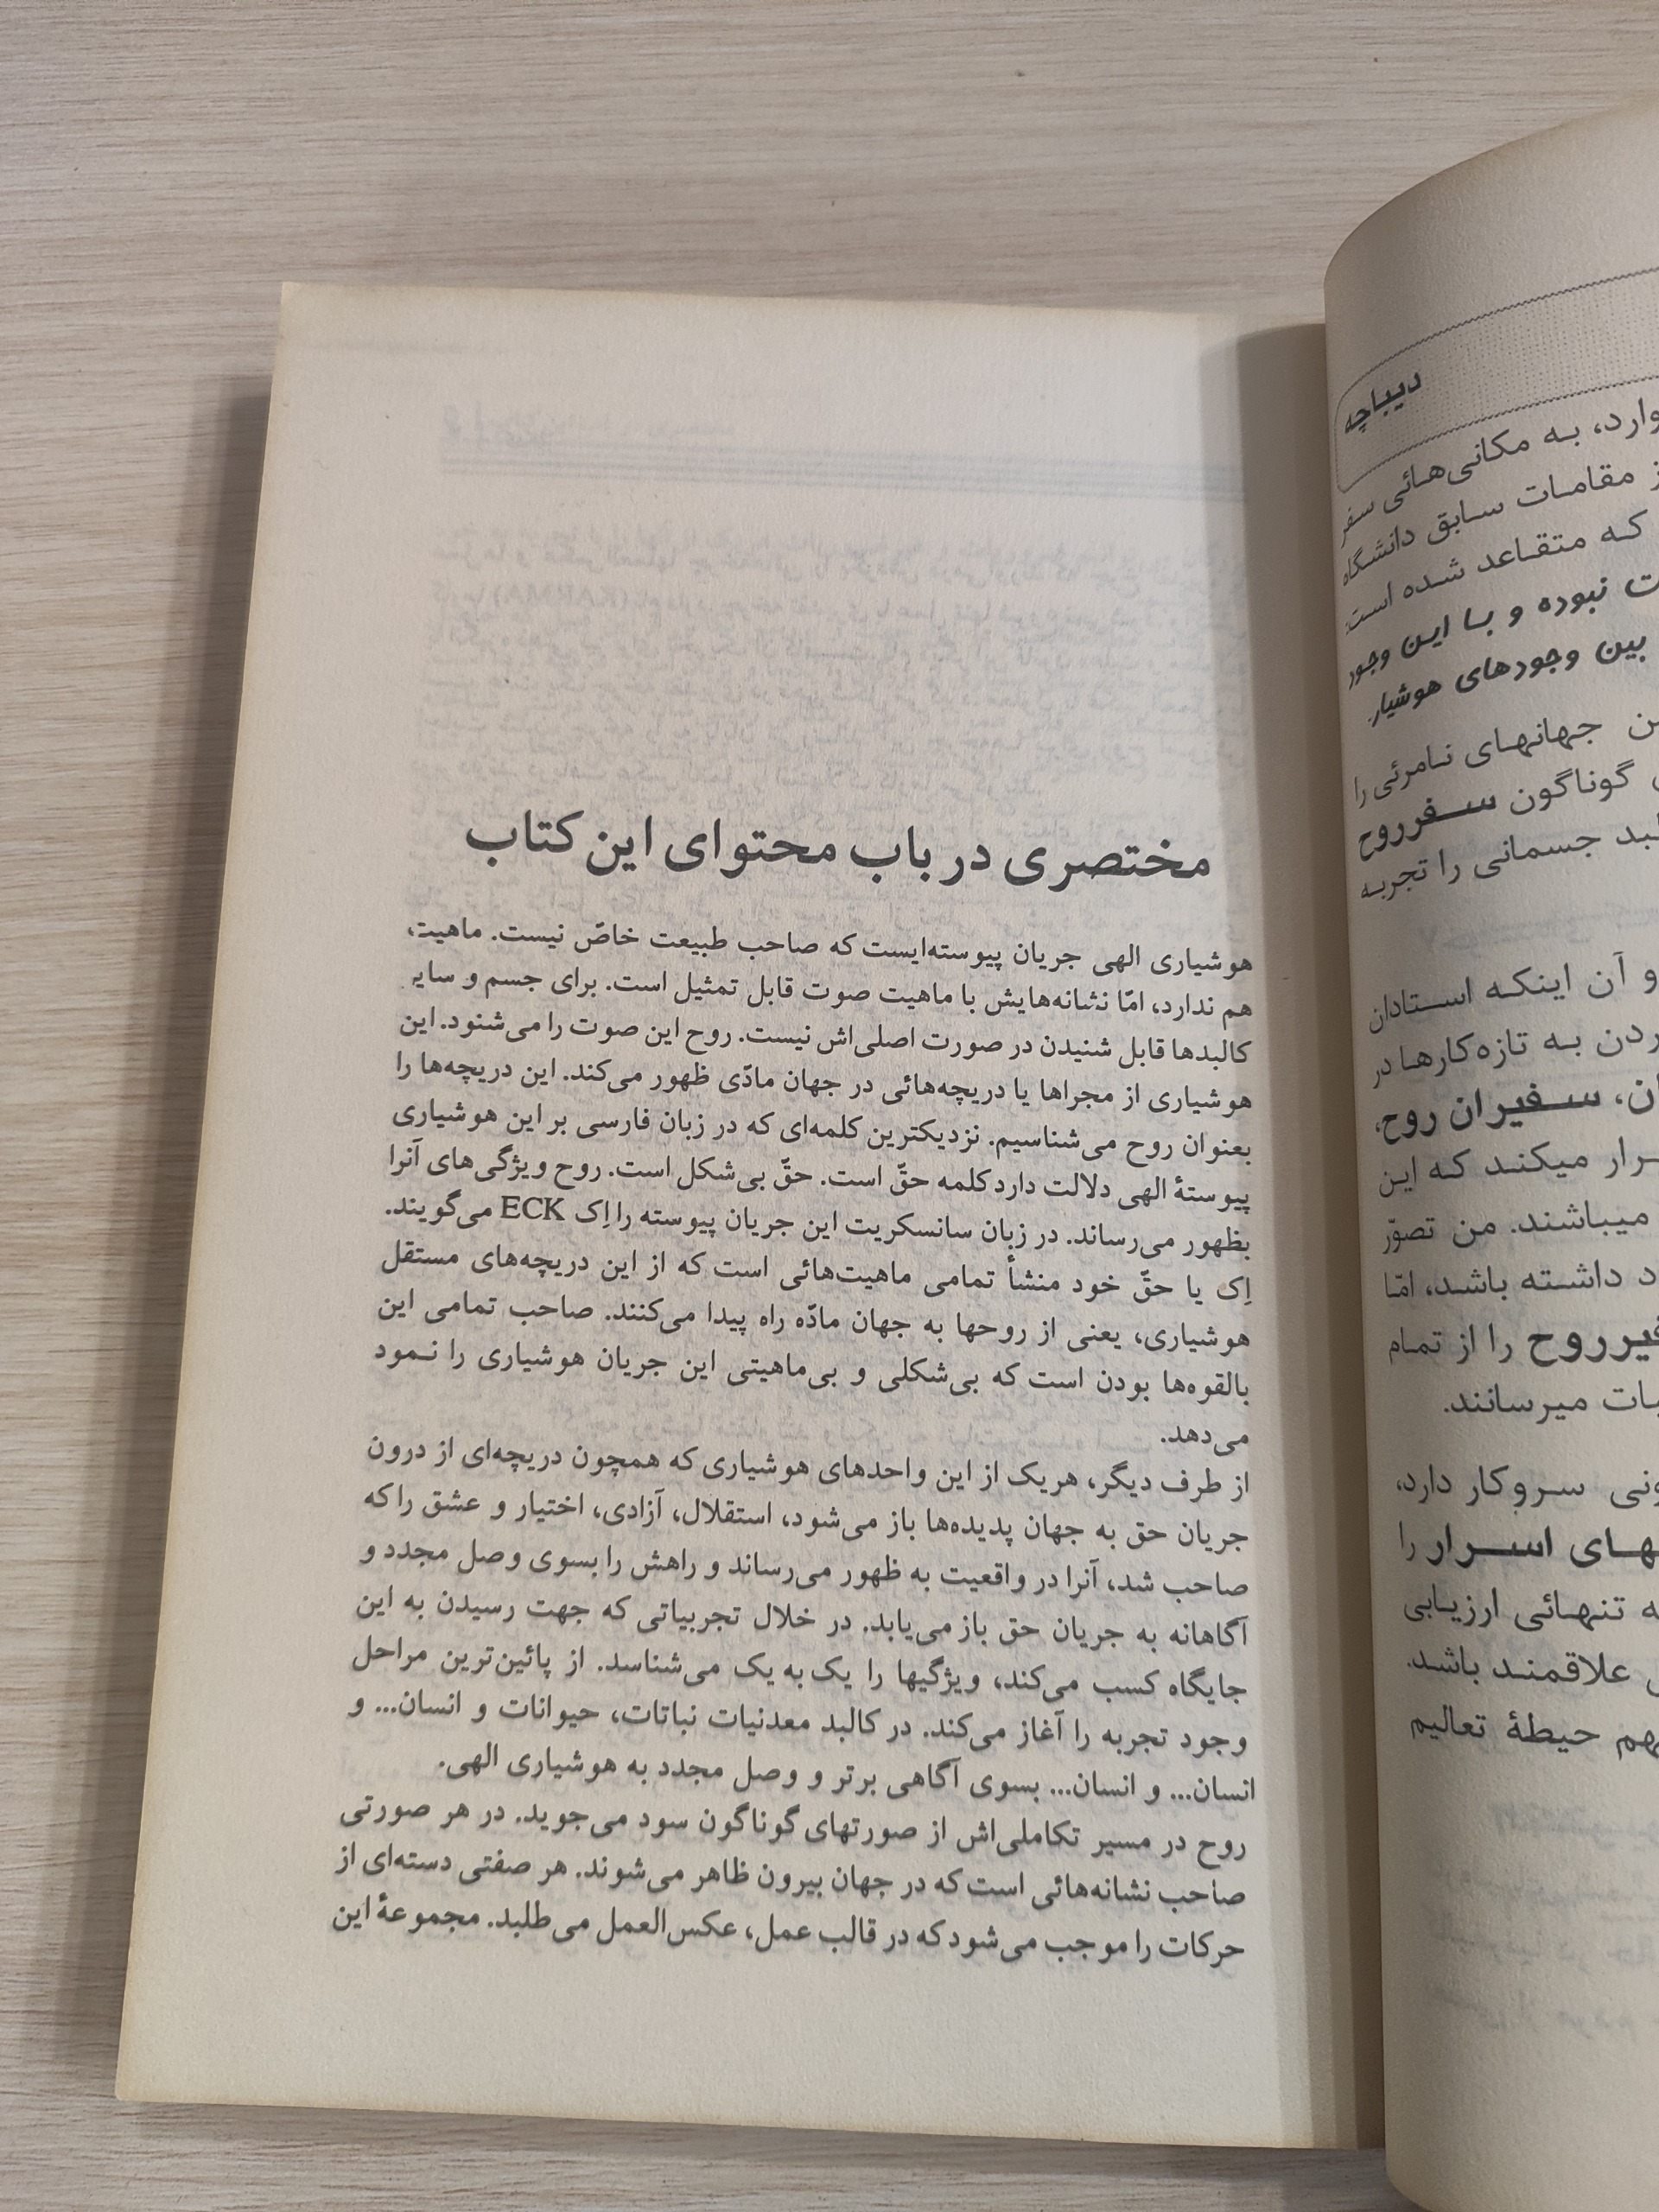 مختصری در باب محتوای این کتاب
هوشیاری الهی جریان پیوسته‌ایست که صاحب طبیعت خاصّ نیست. ماهیت،
هم ندارد، امّا نشانه‌هایش با ماهیت صوت قابل تمثیل است. برای جسم و سایر
کالبدها قابل شنیدن در صورت اصلی‌اش نیست. روح این صوت را می‌شنود. این
هوشیاری از مجراها یا دریچه‌هائی در جهان مادّی ظهور می‌کند. این دریچه‌ها را
بعنوان روح می‌شناسیم. نزدیکترین کلمه‌ای که در زبان فارسی بر این هوشیاری
پیوستهٔ الهی دلالت دارد کلمه حقّ است. حقّ بی‌شکل است. روح ویژگی‌های آنرا
بظهور می‌رساند. در زبان سانسکریت این جریان پیوسته را اِک ECK می‌گویند.
اِک یا حقّ خود منشأ تمامی ماهیت‌هائی است که از این دریچه‌های مستقل
هوشیاری، یعنی از روحها به جهان مادّه راه پیدا می‌کنند. صاحب تمامی این
بالقوه‌ها بودن است که بی‌شکلی و بی‌ماهیتی این جریان هوشیاری را نمود
می‌دهد.
از طرف دیگر، هریک از این واحدهای هوشیاری که همچون دریچه‌ای از درون
جریان حق به جهان پدیده‌ها باز می‌شود، استقلال، آزادی، اختیار و عشق را که
صاحب شد، آنرا در واقعیت به ظهور می‌رساند و راهش را بسوی وصل مجدد و
آگاهانه به جریان حق باز می‌یابد. در خلال تجربیاتی که جهت رسیدن به این
جایگاه کسب می‌کند، ویژگیها را یک به یک می‌شناسد. از پائین‌ترین مراحل
وجود تجربه را آغاز می‌کند. در کالبد معدنیات نباتات، حیوانات و انسان... و
انسان... و انسان... بسوی آگاهی برتر و وصل مجدد به هوشیاری الهی.
روح در مسیر تکاملی‌اش از صورتهای گوناگون سود می‌جوید. در هر صورتی
صاحب نشانه‌هائی است که در جهان بیرون ظاهر می‌شوند. هر صفتی دسته‌ای از
حرکات را موجب می‌شود که در قالب عمل، عکس‌العمل می‌طلبد. مجموعهٔ این
دیباچه
به مکانی‌هائی سفر
مقامات سابق دانشگاه
که متقاعد شده است
نبوده و با این وجود
بین وجودهای هوشیار
جهانهای نامرئی را
گوناگون سفر روح
جسمانی را تجربه
و آن اینکه استادان
به تازه‌کارها در
سفیران روح،
میکند که این
میباشند. من تصوّر
داشته باشد، امّا
روح را از تمام
میرسانند.
سروکار دارد،
اسرار را
تنهائی ارزیابی
علاقمند باشد.
حیطهٔ تعالیم